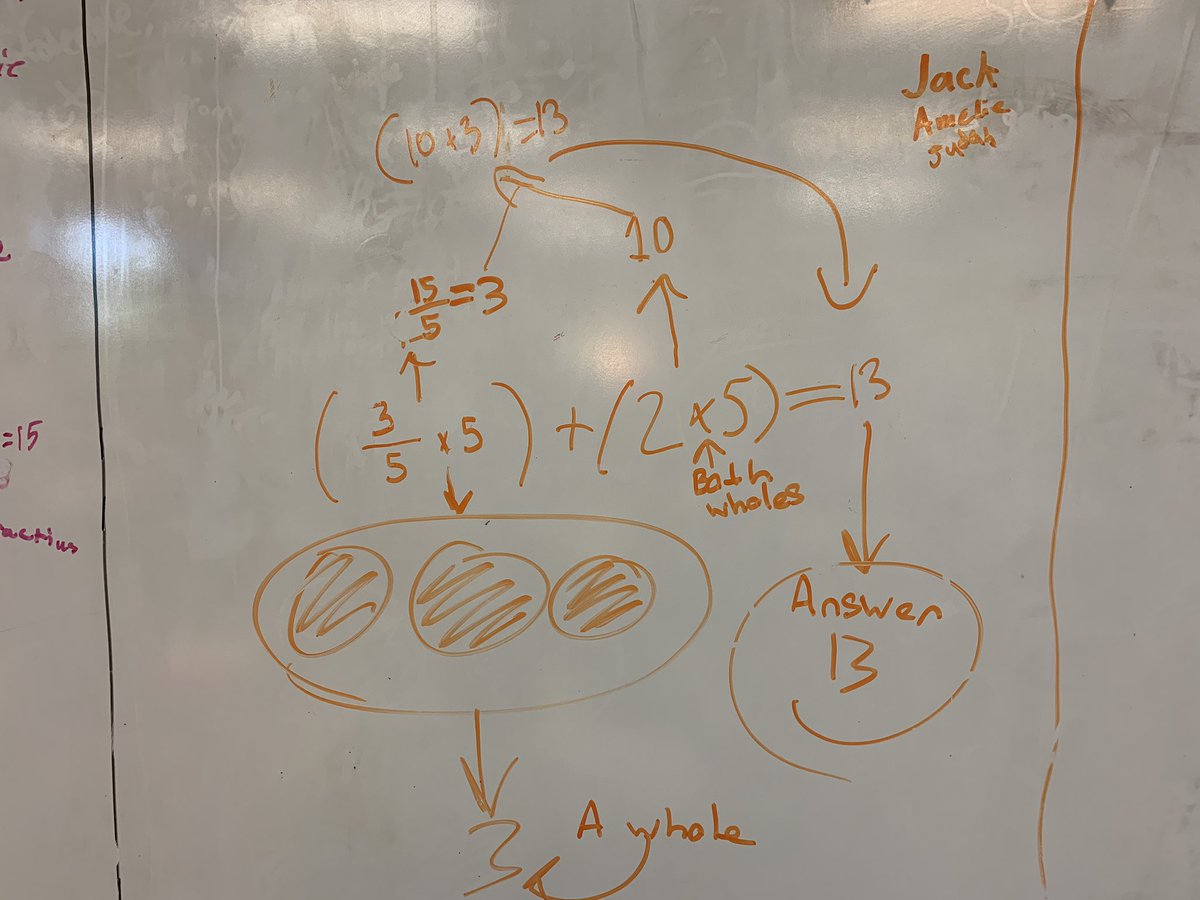 Jack
Amelie
Judah
(10+3)=13
10
15/5=3
(3/5 × 5) + (2 × 5) = 13
Both
wholes
Answer
13
3
A whole
=15